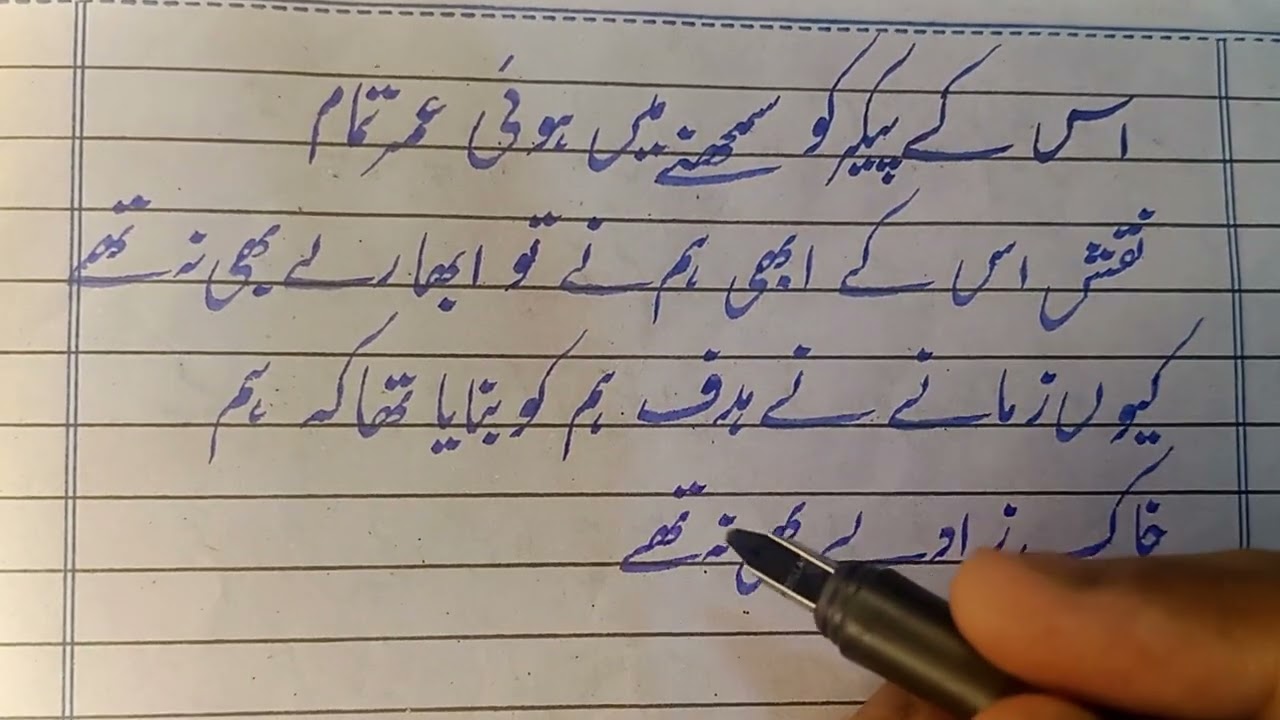 اس کے پیکر کو سمجھنے میں ہوئی عمر تمام
نقش اس کے ابھی ہم نے تو ابھارے بھی نہ تھے
کیوں زمانے نے ہدف ہم کو بنایا تھا کہ ہم
خاک زادے بھی نہ تھے